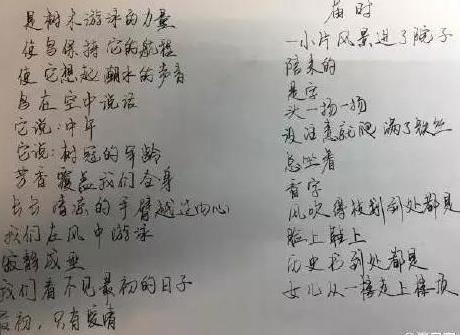 是树木游泳的力量
使鸟保持它的航程
使它想起潮水的声音
鸟在空中说话
它说:中午
它说:树冠的年龄
芳香覆盖我们全身
长长清凉的手臂越过内心
我们在风中游泳
寂静成型
我们看不见最初的日子
最初,只有爱情
届时
一小片风景进了院子
陪来的
是字
头一扬一扬
没注意就爬满了铁丝
总坐着
看字
风吹得枝到处都是
脸上鞋上
历史书到处都是
女儿从一橡皮上擦顶